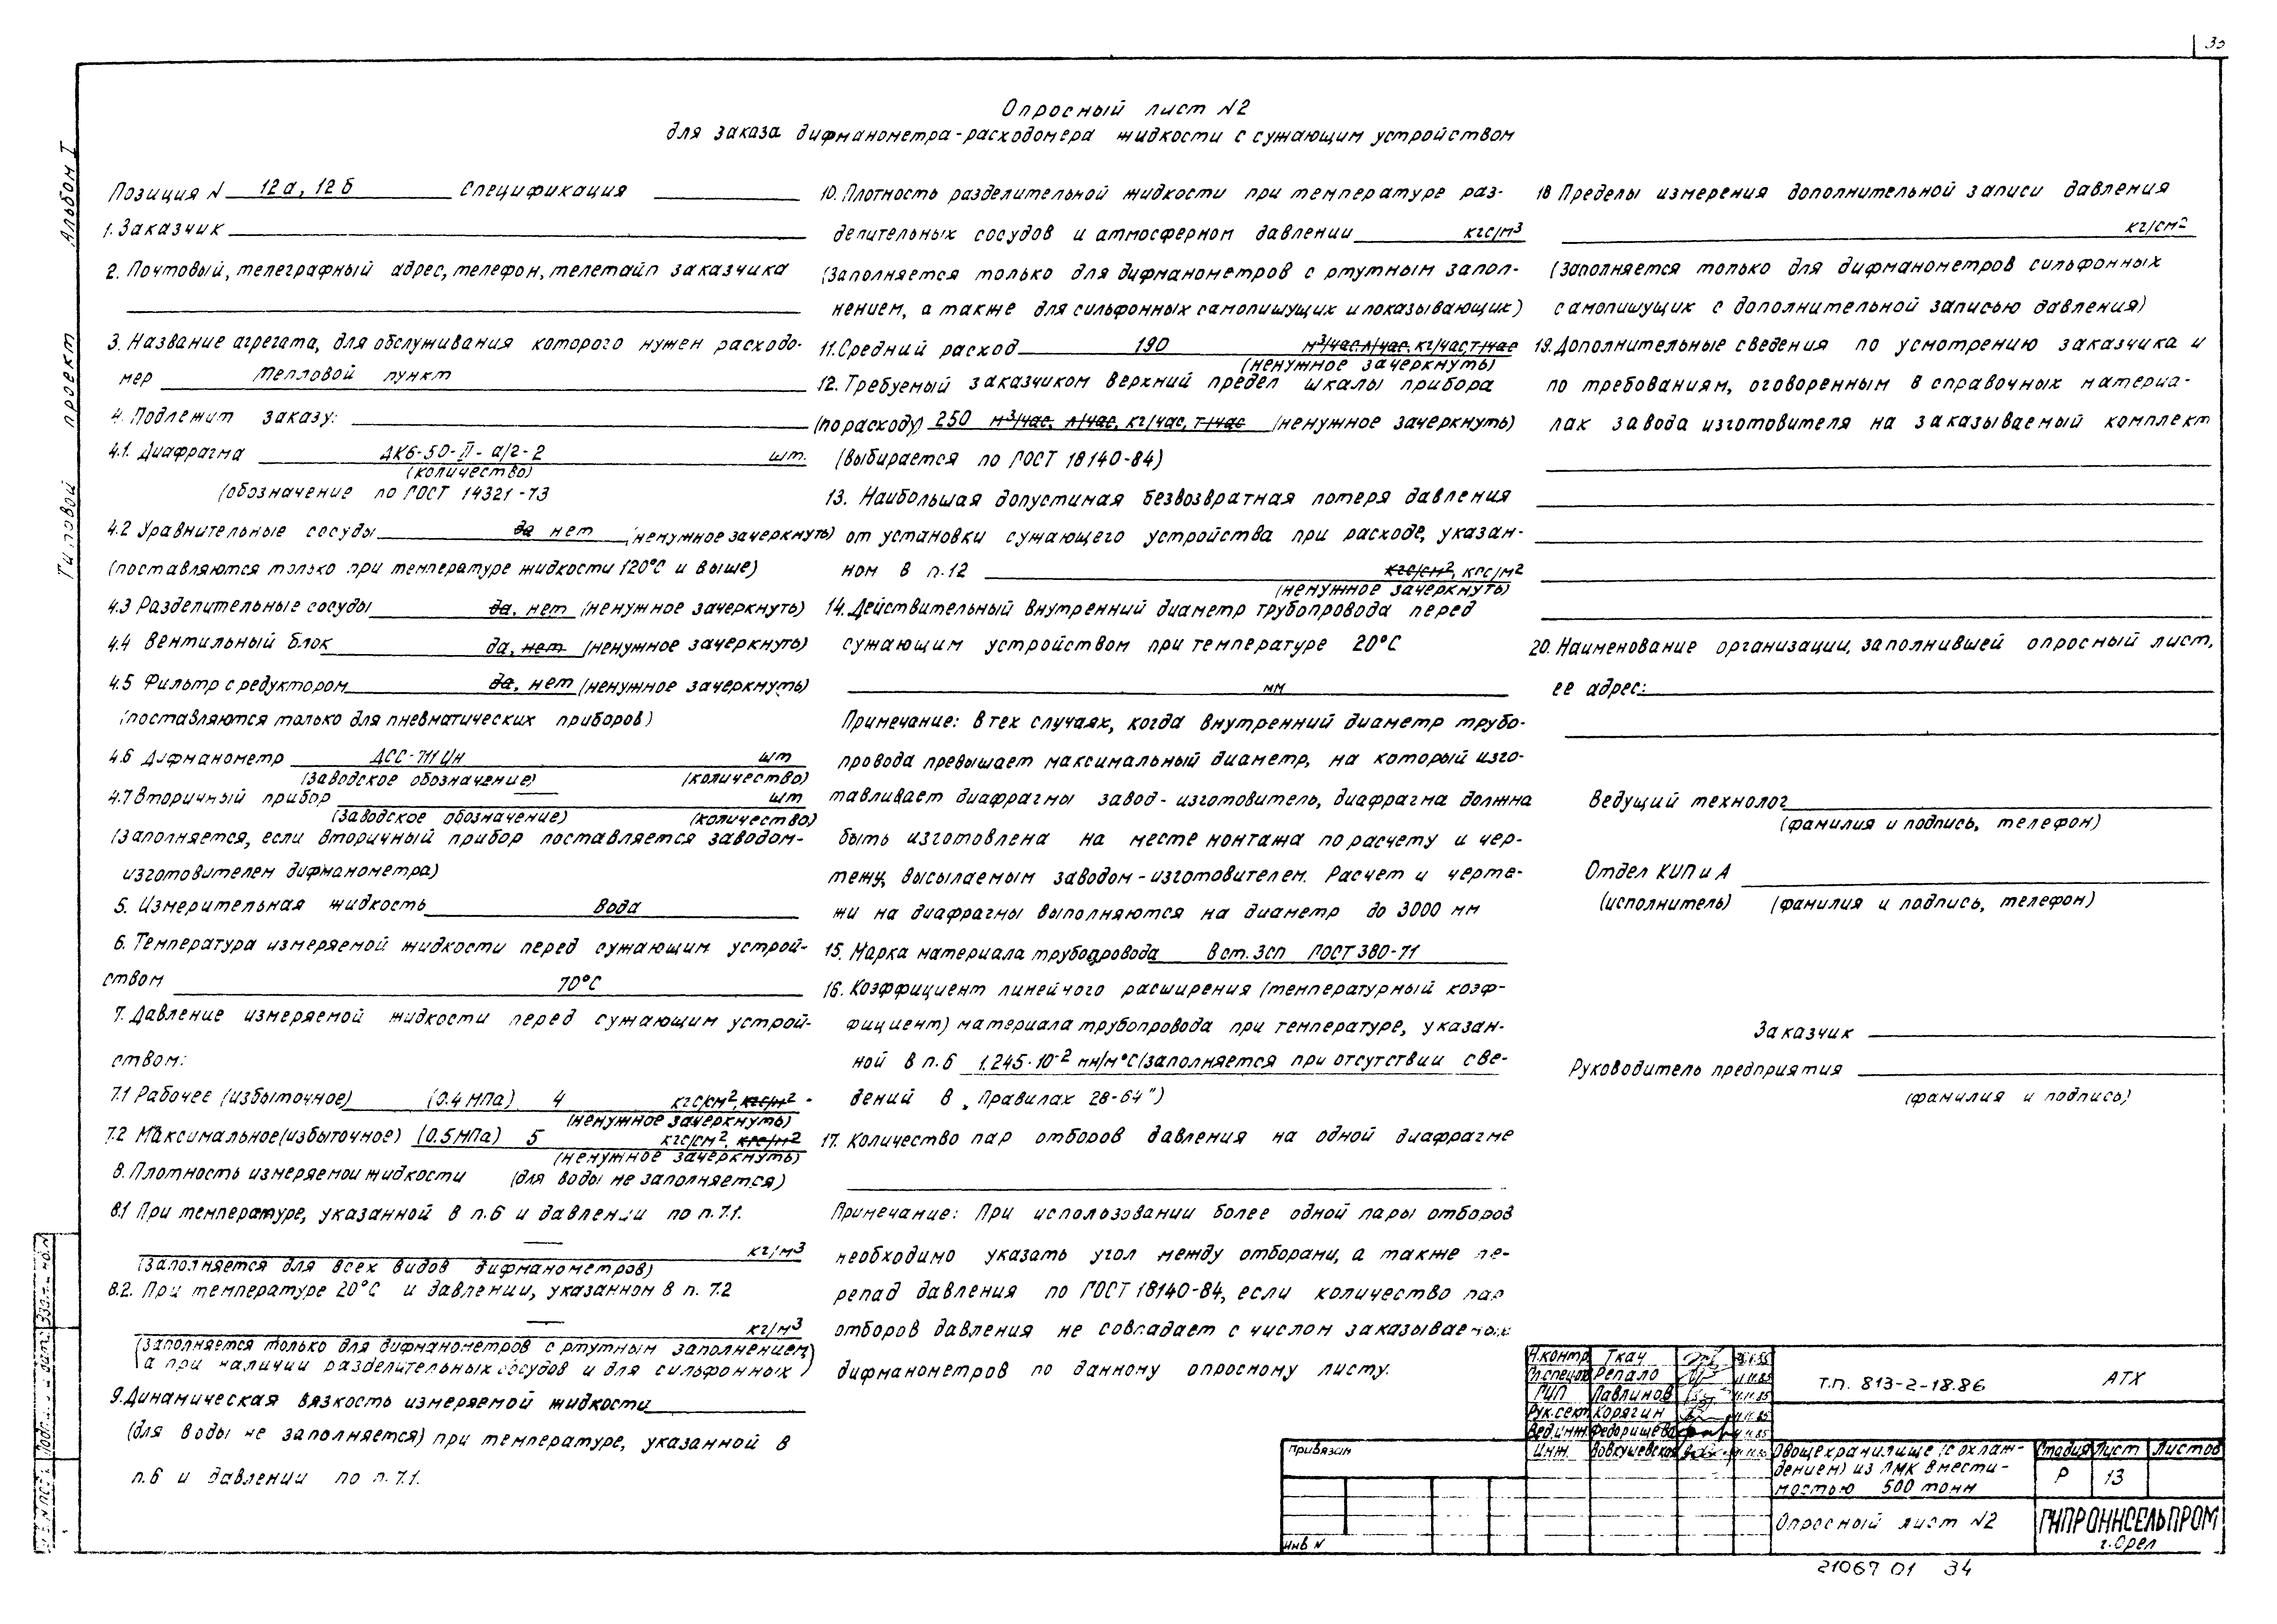 Опросный лист N2
для заказа дифманометра-расходомера жидкости с сужающим устройством
Альбом I
Типовой проект
Позиция N 12а, 12б Спецификация
1. Заказчик
2. Почтовый, телеграфный адрес, телефон, телетайп заказчика
3. Название агрегата, для обслуживания которого нужен расходо-
мер Тепловой пункт
4. Подлежит заказу:
4.1. Диафрагма ДК6-50-II-а/2-2 шт.
(количество)
(обозначение по ГОСТ 14321-73
4.2 Уравнительные сосуды да нет (ненужное зачеркнуть)
(поставляются только при температуре жидкости 120°С и выше)
4.3 Разделительные сосуды да, нет (ненужное зачеркнуть)
4.4 Вентильный блок да, нет (ненужное зачеркнуть)
4.5 Фильтр с редуктором да, нет (ненужное зачеркнуть)
(поставляются только для пневматических приборов)
4.6 Дифманометр ДСС-711Цн шт
(Заводское обозначение) (количество)
4.7 Вторичный прибор шт
(Заводское обозначение) (количество)
(Заполняется, если вторичный прибор поставляется заводом-
изготовителем дифманометра)
5. Измерительная жидкость Вода
6. Температура измеряемой жидкости перед сужающим устрой-
ством 70°С
7. Давление измеряемой жидкости перед сужающим устрой-
ством:
7.1 Рабочее (избыточное) (0.4 МПа) 4 кгс/см², кгс/м²
(ненужное зачеркнуть)
7.2 Максимальное (избыточное) (0.5 МПа) 5 кгс/см², кгс/м²
(ненужное зачеркнуть)
8. Плотность измеряемой жидкости (для воды не заполняется)
8.1 При температуре, указанной в п.6 и давлении по п.7.1.
— кг/м³
(Заполняется для всех видов дифманометров)
8.2. При температуре 20°С и давлении, указанном в п. 7.2
— кг/м³
(Заполняется только для дифманометров с ртутным заполнением,
а при наличии разделительных сосудов и для сильфонных)
9. Динамическая вязкость измеряемой жидкости
(для воды не заполняется) при температуре, указанной в
п.6 и давлении по п.7.1.
10. Плотность разделительной жидкости при температуре раз-
делительных сосудов и атмосферном давлении кгс/м³
(Заполняется только для дифманометров с ртутным запол-
нением, а также для сильфонных самопишущих и показывающих)
11. Средний расход 190 м³/час. л/час. кг/час, т/час
(ненужное зачеркнуть)
12. Требуемый заказчиком верхний предел шкалы прибора
(по расходу) 250 м³/час, л/час, кг/час, т/час (ненужное зачеркнуть)
(Выбирается по ГОСТ 18140-84)
13. Наибольшая допустимая безвозвратная потеря давления
от установки сужающего устройства при расходе, указан-
ном в п.12 кгс/см², кгс/м²
(ненужное зачеркнуть)
14. Действительный внутренний диаметр трубопровода перед
сужающим устройством при температуре 20°С
мм
Примечание: В тех случаях, когда внутренний диаметр трубо-
провода превышает максимальный диаметр, на который изго-
тавливает диафрагмы завод-изготовитель, диафрагма должна
быть изготовлена на месте монтажа по расчету и чер-
тежу, высылаемым заводом-изготовителем. Расчет и черте-
жи на диафрагмы выполняются на диаметр до 3000 мм
15. Марка материала трубопровода Вст.3сп ГОСТ 380-71
16. Коэффициент линейного расширения (температурный коэф-
фициент) материала трубопровода при температуре, указан-
ной в п.6 1.245·10⁻² мм/м°С (заполняется при отсутствии све-
дений в „Правилах 28-64")
17. Количество пар отборов давления на одной диафрагме
Примечание: При использовании более одной пары отборов
необходимо указать угол между отборами, а также пе-
репад давления по ГОСТ 18140-84, если количество пар
отборов давления не совпадает с числом заказываемых
дифманометров по данному опросному листу.
18 Пределы измерения дополнительной записи давления
кг/см²
(Заполняется только для дифманометров сильфонных
самопишущих с дополнительной записью давления)
19. Дополнительные сведения по усмотрению заказчика и
по требованиям, оговоренным в справочных материа-
лах завода изготовителя на заказываемый комплект
20. Наименование организации, заполнившей опросный лист,
ее адрес:
Ведущий технолог
(фамилия и подпись, телефон)
Отдел КИП и А
(исполнитель) (фамилия и подпись, телефон)
Заказчик
Руководитель предприятия
(фамилия и подпись)
Н.контр. Ткач
Гл.спецот Репало
ГИП Павлинов
Рук.сект Корягин
Вед.инж. Федорищева
Инж. Вовкушевская
Т.п. 813-2-18.86 АТХ
Овощехранилище (с охлаж-
дением) из ЛМК вмести-
мостью 500 тонн
Стадия Лист Листов
Р 13
Опросный лист N2
ГИПРОНИСЕЛЬПРОМ
г. Орел
Привязан
Инв N
21067 01 34